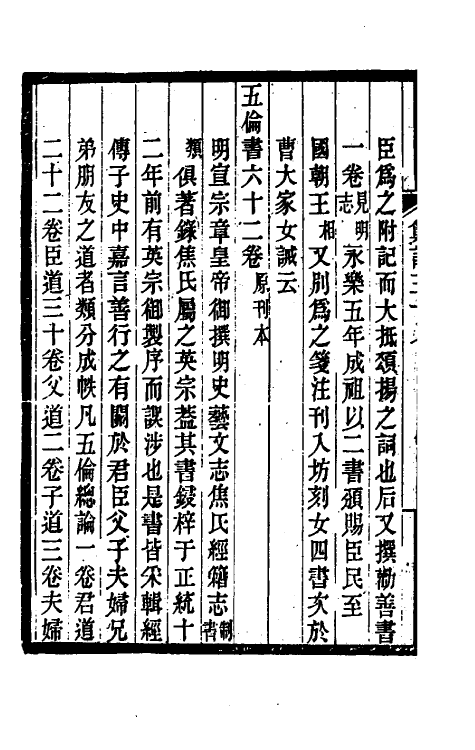 臣爲之附記而大抵頌揚之詞也后又撰勸善書
一卷見明志永樂五年成祖以二書頒賜臣民至
國朝王相又別爲之箋注刊入坊刻女四書次於
曹大家女誡云
五倫書六十二卷原刊本
明宣宗章皇帝御撰明史藝文志焦氏經籍志制書
類俱著錄焦氏屬之英宗葢其書鋟梓于正統十
二年前有英宗御製序而誤涉也是書皆采輯經
傳子史中嘉言善行之有關於君臣父子夫婦兄
弟朋友之道者類分成帙凡五倫總論一卷君道
二十二卷臣道三十卷父道二卷子道三卷夫婦